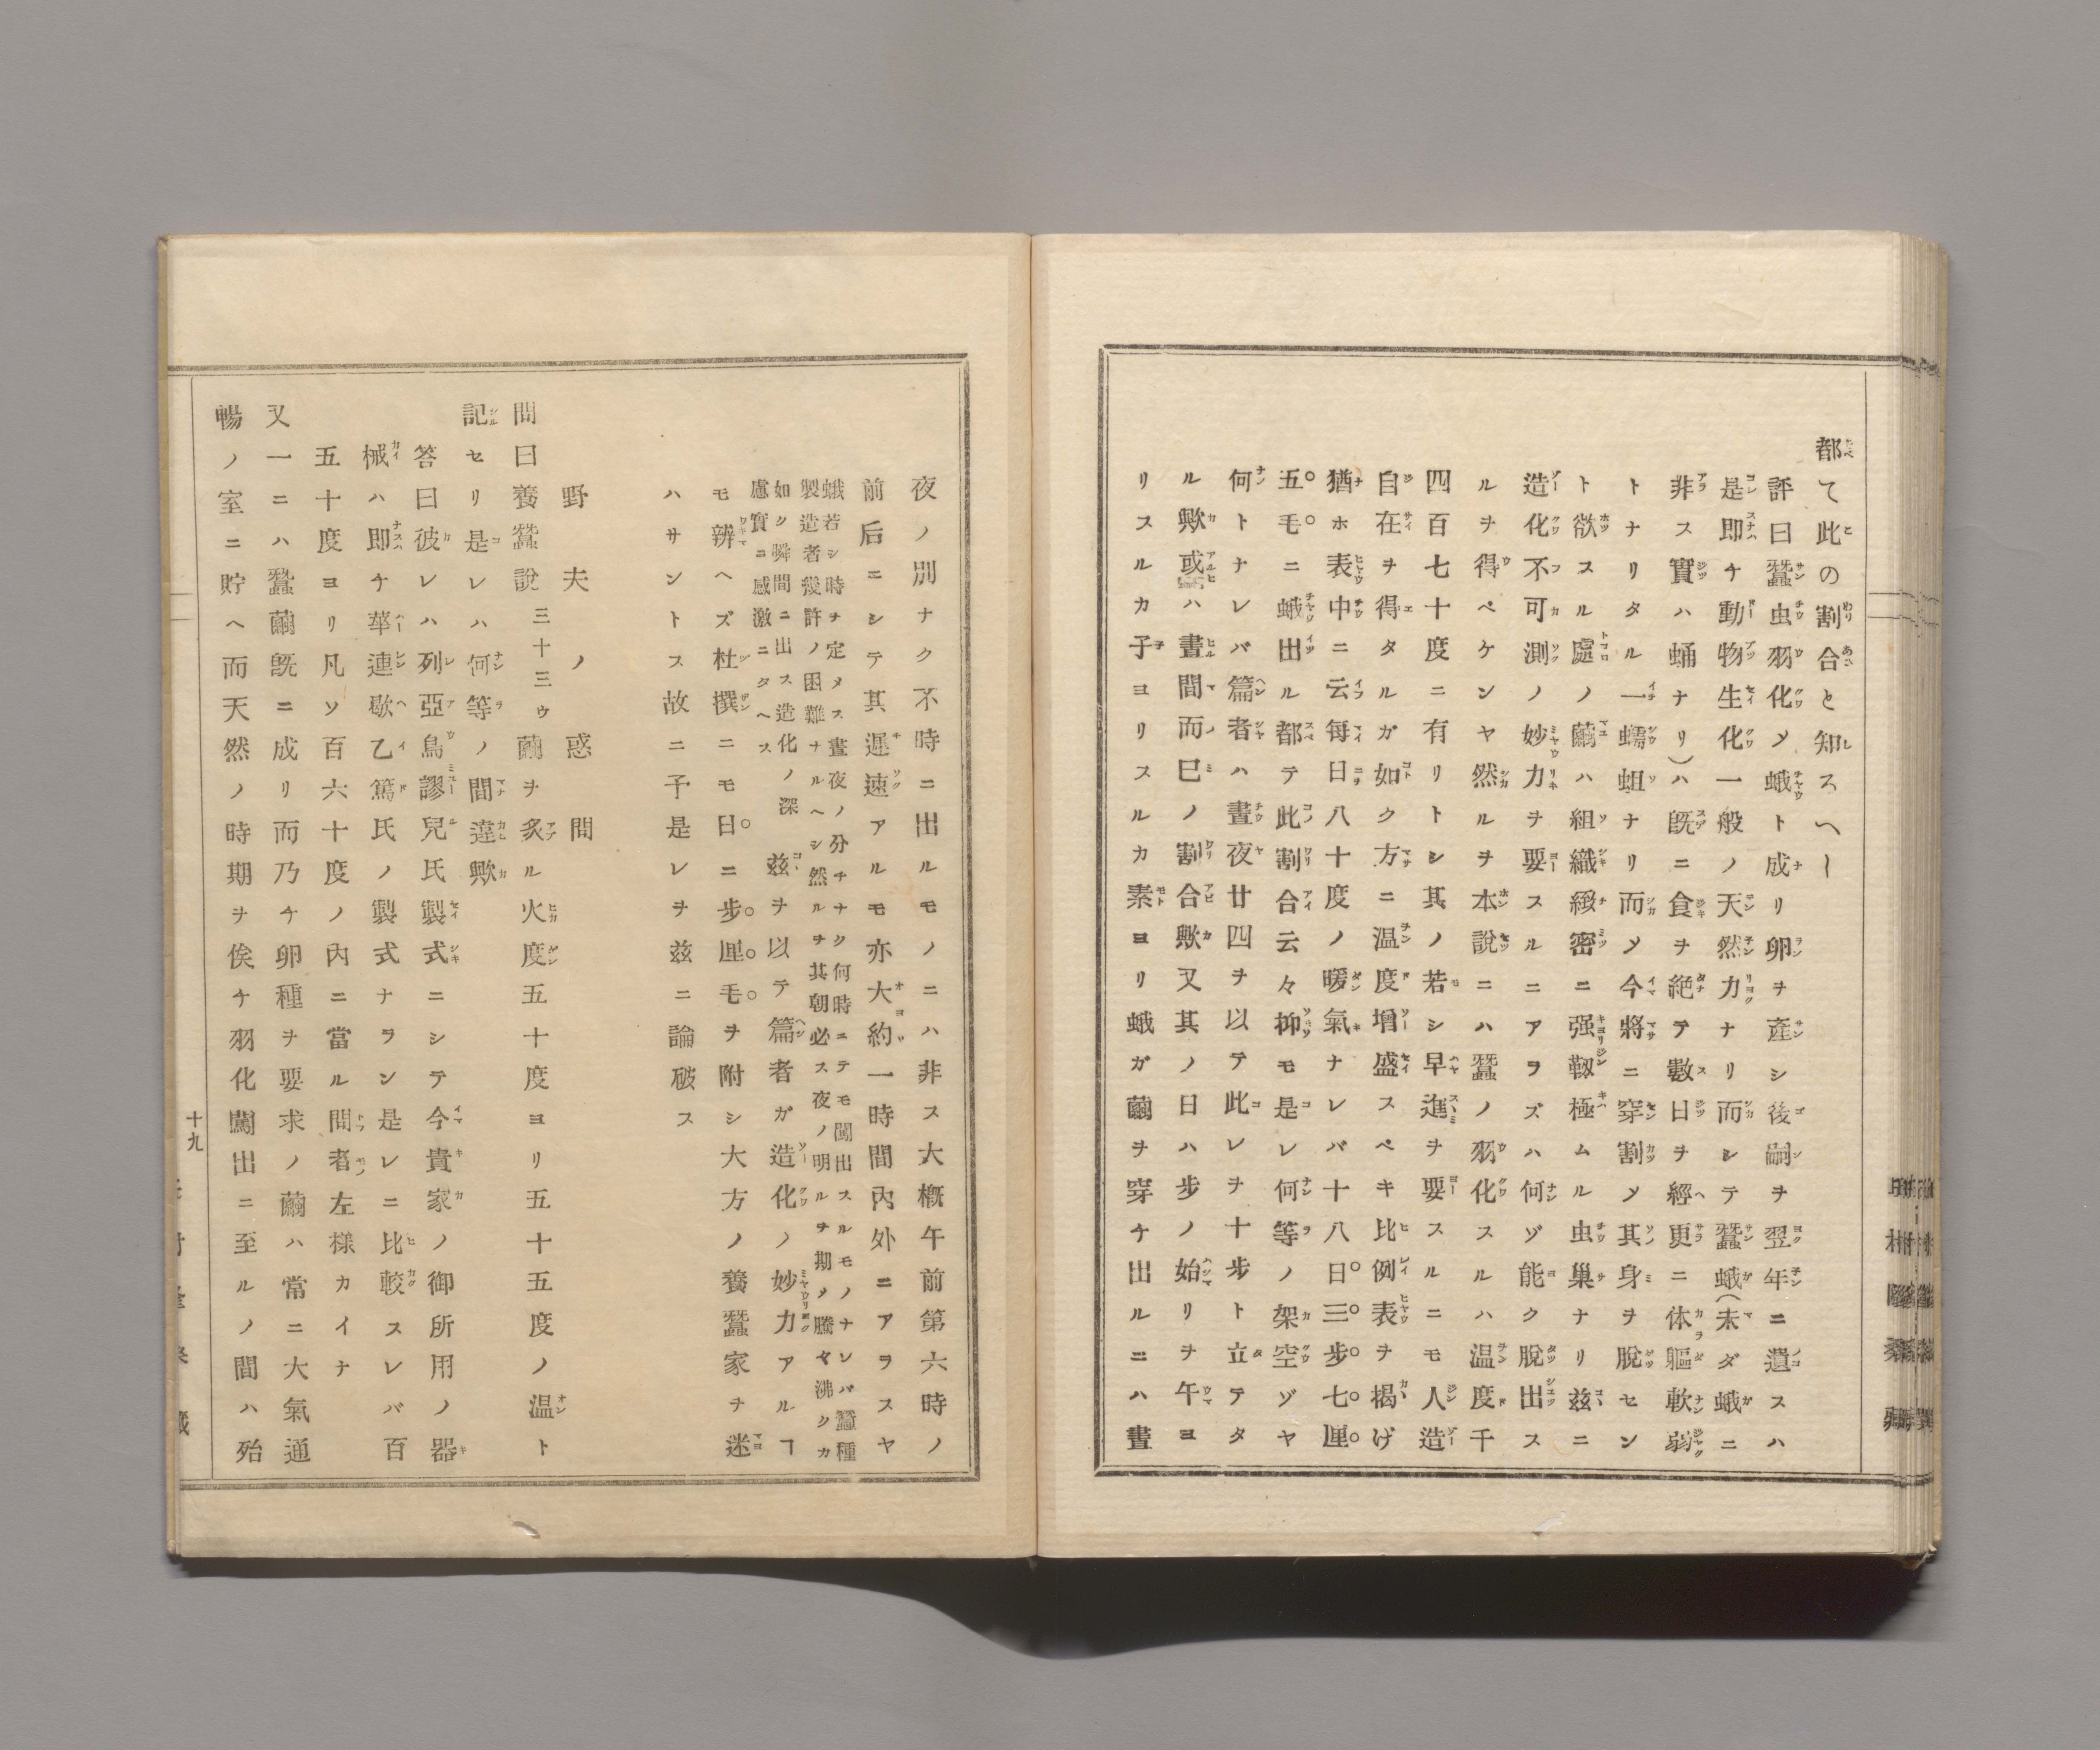 都て此の割合と知スへー
評曰蠶虫羽化メ蛾ト成リ卵ヲ產シ後嗣ヲ翌年ニ遺スハ
是即チ動物生化一般ノ天然力ナリ而シテ蠶蛾(未ダ蛾ニ
非ス實ハ蛹ナリ)ハ既ニ食ヲ絕テ數日ヲ經更ニ体軀軟弱
トナリタル一蠕蛆ナリ而メ今將ニ穿割メ其身ヲ脫セン
ト欲スル處ノ繭ハ組織緻密ニ强靱極ムル虫巢ナリ兹ニ
造化不可測ノ妙力ヲ要スルニアヲズハ何ゾ能ク脫出ス
ルヲ得ベケンヤ然ルヲ本說ニハ蠶ノ羽化スルハ温度千
四百七十度ニ有リトシ其ノ若シ早進ヲ要スルニモ人造
自在ヲ得タルガ如ク方ニ温度增盛スベキ比例表ヲ揭げ
猶ホ表中ニ云每日八十度ノ暖氣ナレバ十八日三步七厘
五毛ニ蛾出ル都テ此割合云々抑モ是レ何等ノ架空ゾヤ
何トナレバ篇者ハ晝夜廿四ヲ以テ此レヲ十步ト立テタ
ル歟或ハ晝間而巳ノ割合歟又其ノ日ハ步ノ始リヲ午ヨ
リスルカ子ヨリスルカ素ヨリ蛾ガ繭ヲ穿チ出ルニハ晝
夜ノ別ナク不時ニ出ルモノニハ非ス大槪午前第六時ノ
前后ニシテ其遲速アルモ亦大約一時間內外ニアヲスヤ
蛾若シ時ヲ定メス晝夜ノ分チナク何時ニテモ闖出スルモノナレバ蠶種
製造者幾許ノ困難ナルヘシ然ルヲ其朝必ス夜ノ明ルヲ期メ騰々沸シカ
如シ瞬間ニ出ス造化ノ深
慮實ニ感激ニタヘス
兹ヲ以テ篇者ガ造化ノ妙力アルヿ
モ辨ヘズ杜撰ニモ日ニ步厘毛ヲ附シ大方ノ養蠶家ヲ迷
ハサントス故ニ予是レヲ兹ニ論破ス
野夫ノ惑問
問曰養蠶說三十三ゥ繭ヲ炙ル火度五十度ヨリ五十五度ノ温ト
記セリ是レハ何等ノ間違歟
答曰彼レハ列亞烏謬兒氏製式ニシテ今貴家ノ御所用ノ器
械ハ即チ華連歇乙篤氏ノ製式ナヲン是レニ比較スレバ百
五十度ヨリ凡ソ百六十度ノ內ニ當ル問者左樣カイナ
又一ニハ蠶繭既ニ成リ而乃チ卵種ヲ要求ノ繭ハ當ニ大氣通
暢ノ室ニ貯ヘ而天然ノ時期ヲ俟チ羽化闖出ニ至ルノ間ハ殆
十九